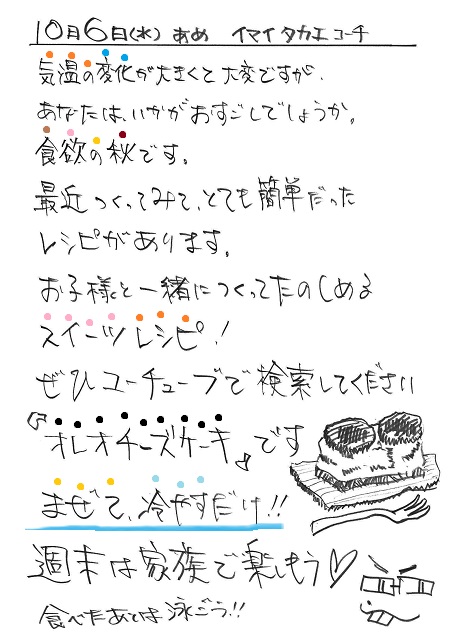 10月6日(水) あめ イマイタカエコーチ
気温の変化が大きくて大変ですが、
あなたは、いかがおすごしでしょうか。
食欲の秋です。
最近つくってみて、とても簡単だった
レシピがあります。
お子様と一緒につくってたのしめる
スイーツレシピ!
ぜひユーチューブで検索してください
『オレオチーズケーキ』です
まぜて、冷やすだけ!!
週末は家族で楽しもう♡
食べたあとは泳ごう!!